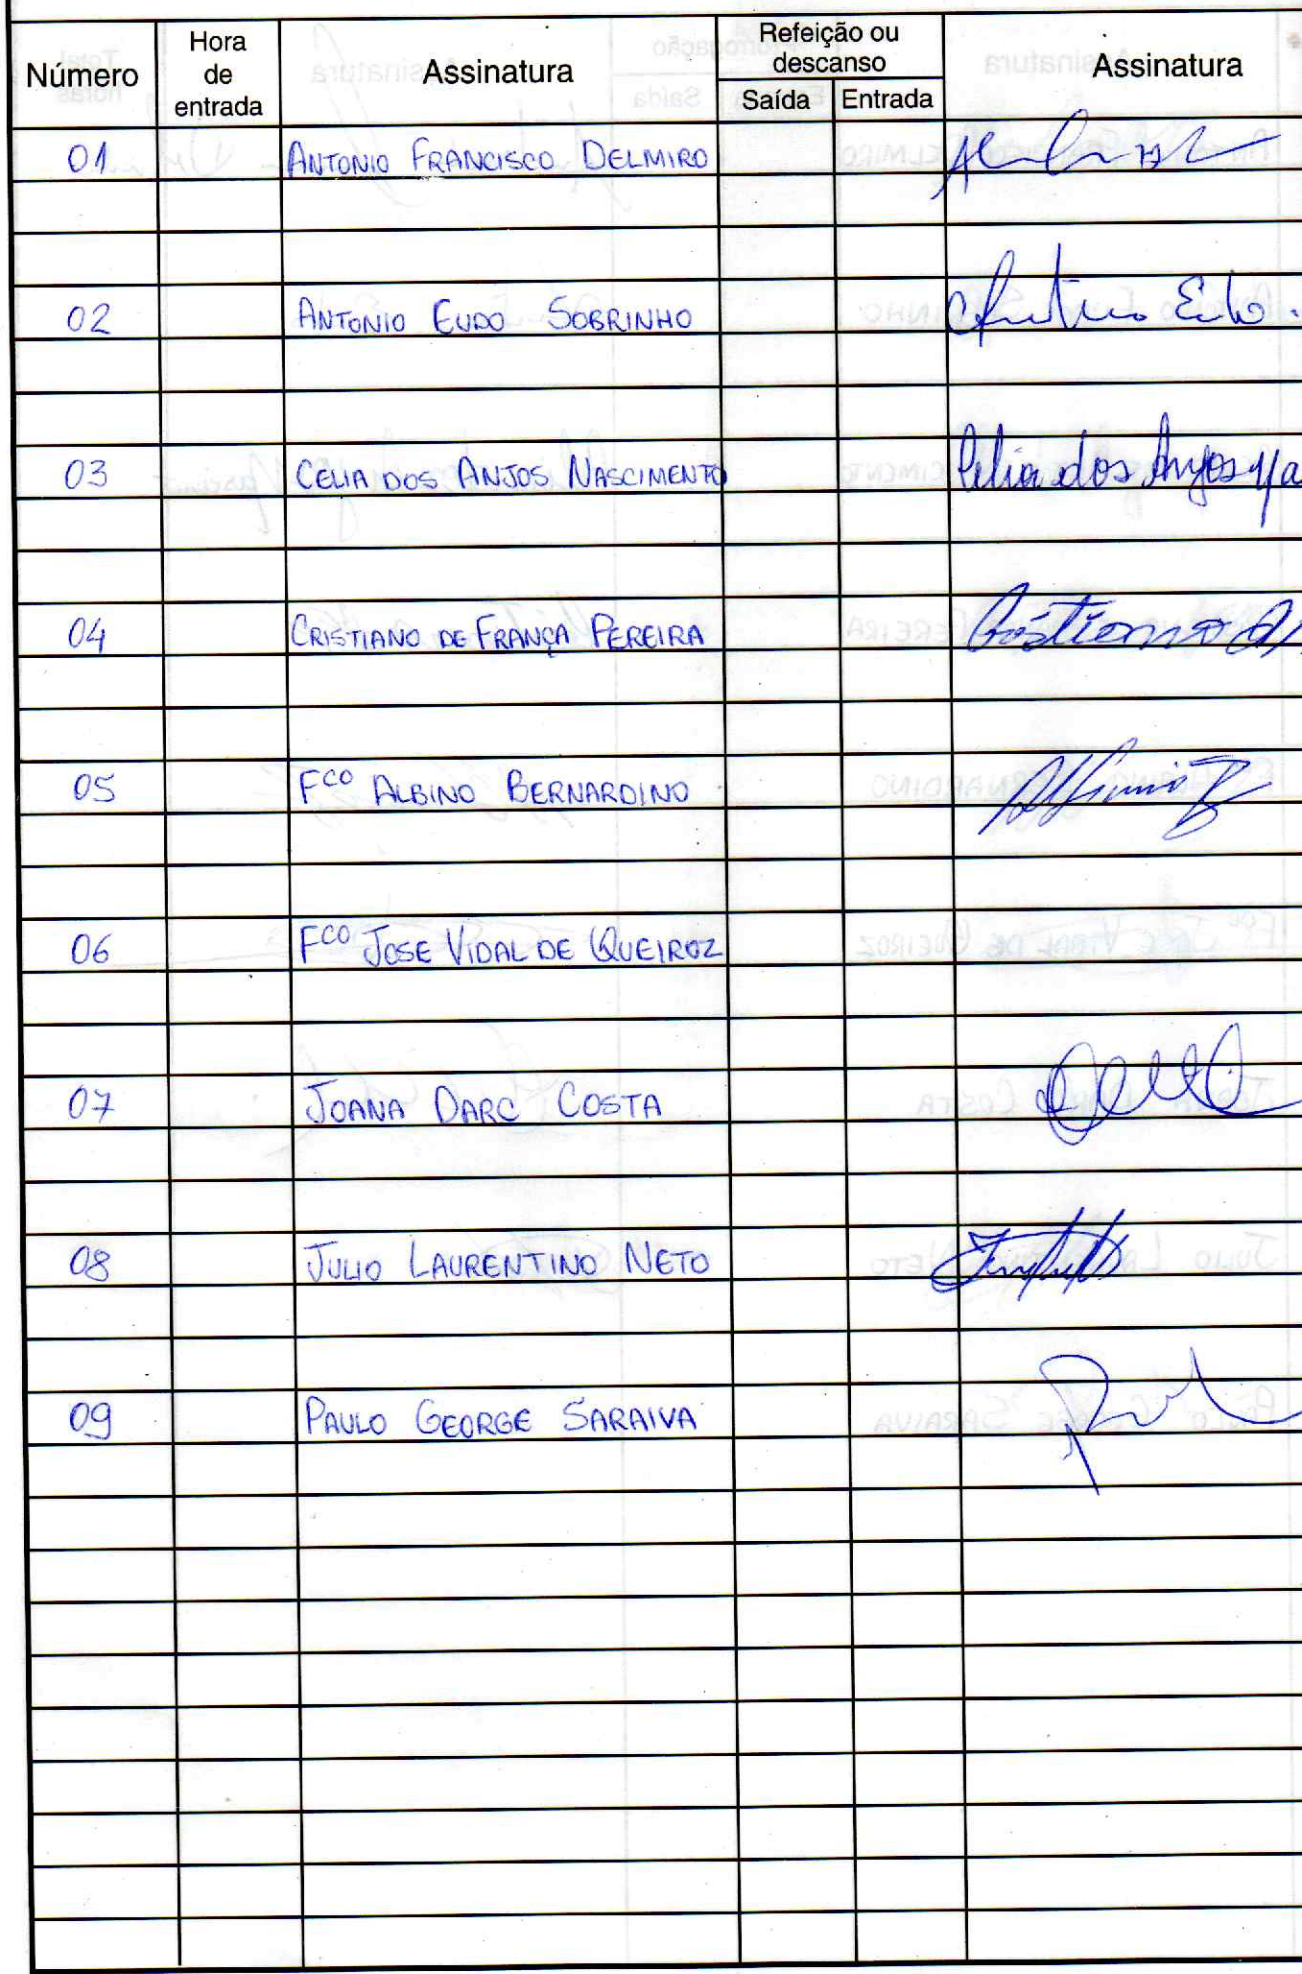 Número Hora de entrada Assinatura Refeição ou descanso Saída Entrada Assinatura
01 ANTONIO FRANCISCO DELMIRO
02 ANTONIO EUDO SOBRINHO Antonio Eudo.
03 CELIA DOS ANJOS NASCIMENTO Célia dos Anjos Na
04 CRISTIANO DE FRANÇA PEREIRA Cristiano
05 Fco ALBINO BERNARDINO
06 Fco JOSE VIDAL DE QUEIROZ
07 JOANA DARC COSTA
08 JULIO LAURENTINO NETO
09 PAULO GEORGE SARAIVA